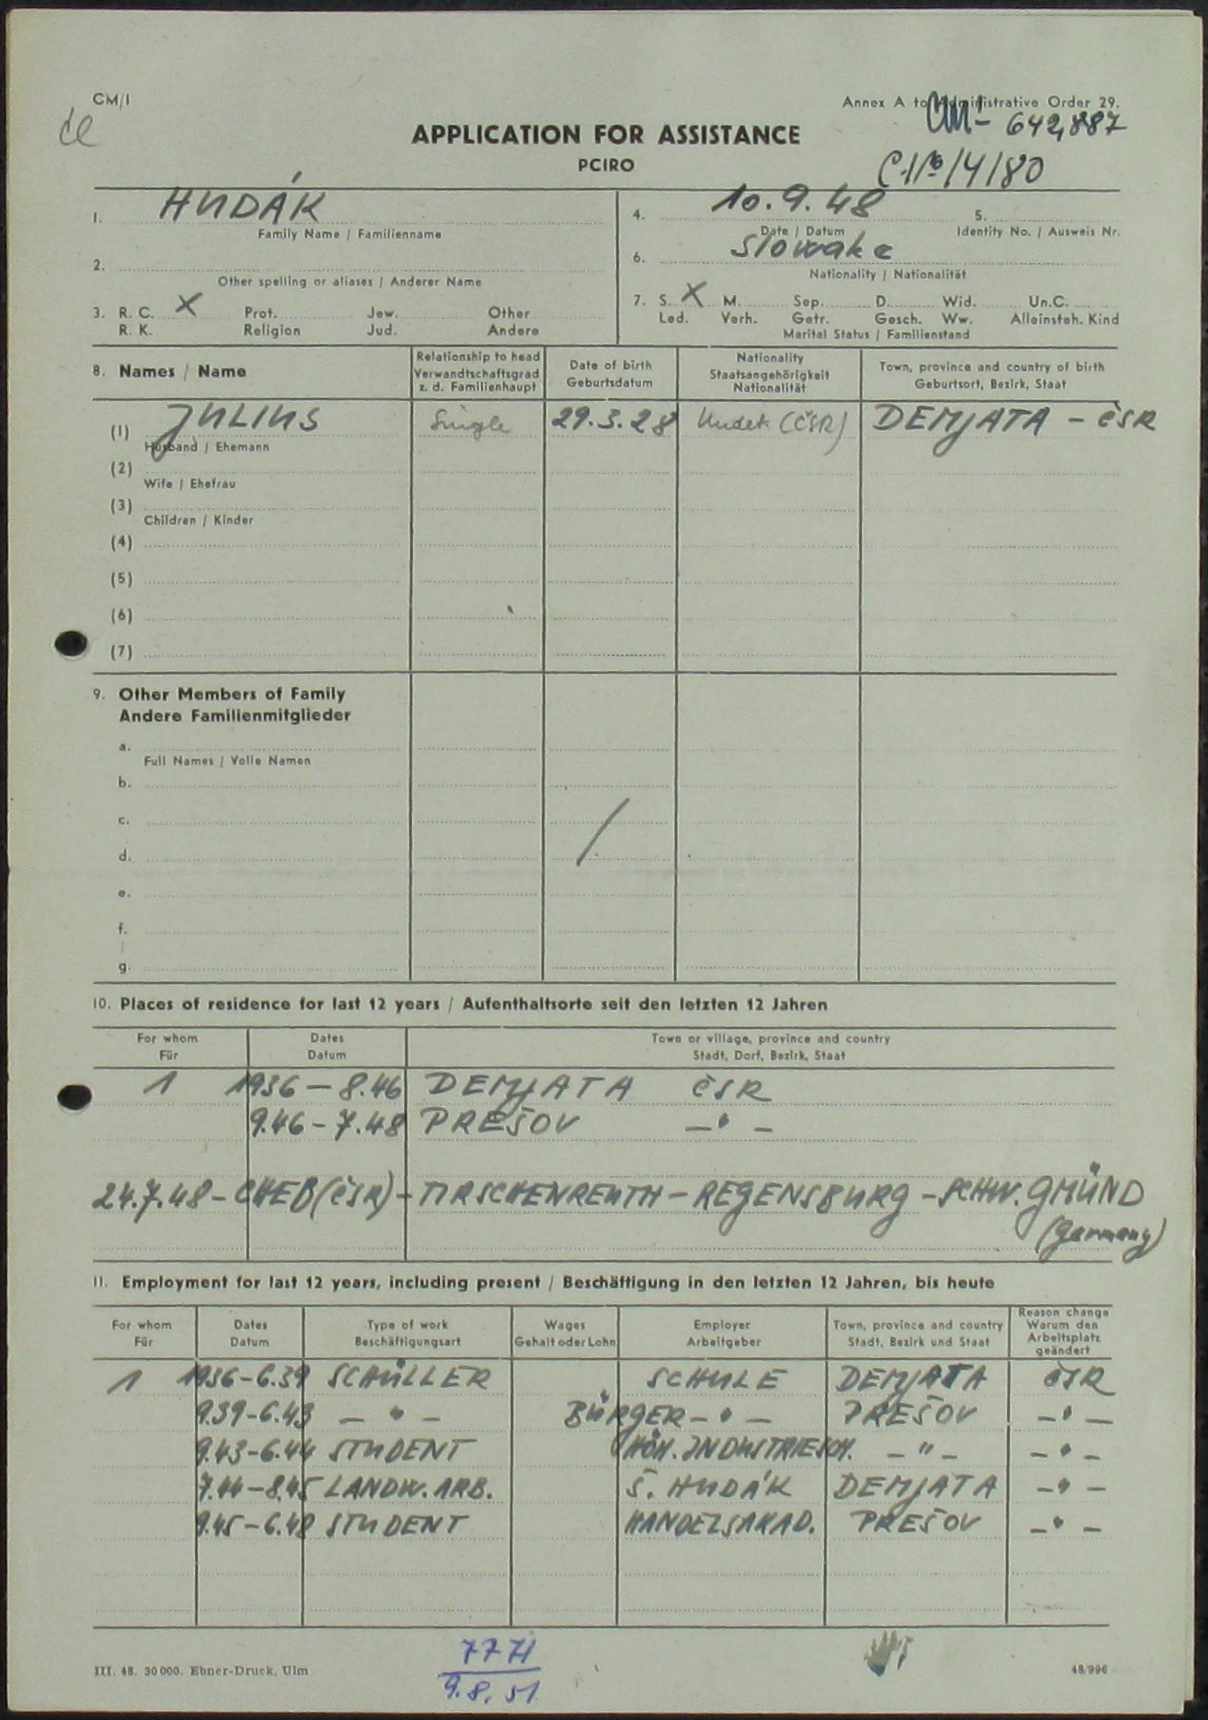 CM/1
Annex A to Administrative Order 29.
CM/1- 642,887
APPLICATION FOR ASSISTANCE
PCIRO
/4/80
1. HUDÁK
Family Name / Familienname
4. 10.9.48 5.
Date / Datum Identity No. / Ausweis Nr.
2.
Other spelling or aliases / Anderer Name
6. Slowake
Nationality / Nationalität
3. R. C. X Prot. Jew. Other
R. K. Religion Jud. Andere
7. S. X M. Sep. D. Wid. Un.C.
Led. Verh. Getr. Gesch. Ww. Alleinsteh. Kind
Marital Status / Familienstand
8. Names / Name
Relationship to head
Verwandtschaftsgrad
z. d. Familienhaupt
Date of birth
Geburtsdatum
Nationality
Staatsangehörigkeit
Nationalität
Town, province and country of birth
Geburtsort, Bezirk, Staat
(1) JULIUS Single 29.3.28 Undet. (ČSR) DEMJATA - ČSR
Husband / Ehemann
(2)
Wife / Ehefrau
(3)
Children / Kinder
(4)
(5)
(6)
(7)
9. Other Members of Family
Andere Familienmitglieder
a.
Full Names / Volle Namen
b.
c.
d.
e.
f.
g.
10. Places of residence for last 12 years / Aufenthaltsorte seit den letzten 12 Jahren
For whom
Für
Dates
Datum
Town or village, province and country
Stadt, Dorf, Bezirk, Staat
1 1936 - 8.46 DEMJATA ČSR
9.46 - 7.48 PREŠOV -"-
24.7.48 - CHEB (ČSR) - TIRSCHENREUTH - REGENSBURG - SCHW. GMÜND
(Germany)
11. Employment for last 12 years, including present / Beschäftigung in den letzten 12 Jahren, bis heute
For whom
Für
Dates
Datum
Type of work
Beschäftigungsart
Wages
Gehalt oder Lohn
Employer
Arbeitgeber
Town, province and country
Stadt, Bezirk und Staat
Reason change
Warum den
Arbeitsplatz
geändert
1 1936-6.39 SCHÜLLER SCHULE DEMJATA ČSR
9.39-6.43 -"- BÜRGER-"- PREŠOV -"-
9.43-6.44 STUDENT HÖH. INDUSTRIESCH. -"- -"-
7.44-8.45 LANDW. ARB. Š. HUDÁK DEMJATA -"-
9.45-6.48 STUDENT HANDELSAKAD. PREŠOV -"-
7771
9.8.51
III. 48. 30000. Ebner-Druck, Ulm
48/996